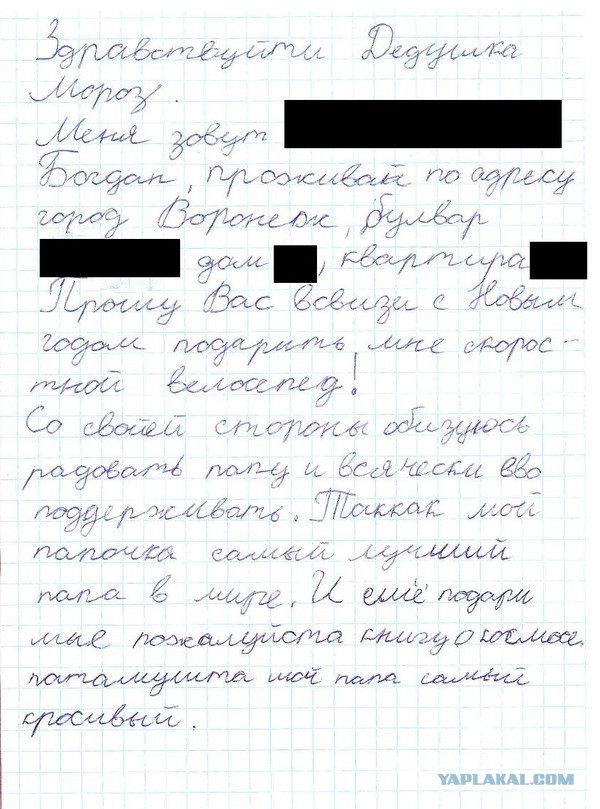 Здравствуйти Дедушка
Мороз.
Меня зовут
Богдан, проживаю по адресу
город Воронеж, булвар
дом , квартира
Прошу Вас всвизи с Новым
годом подарить мне скорос-
тной велосепед!
Со своией стороны обизуюсь
радовать папу и всячески ево
поддерживать. Таккак мой
папочка самый лучший
папа в мире. И ещё подари
мне пожалуйста книгу о космосе.
патамушта мой папа самый
кросивый.
YAPLAKAL.COM